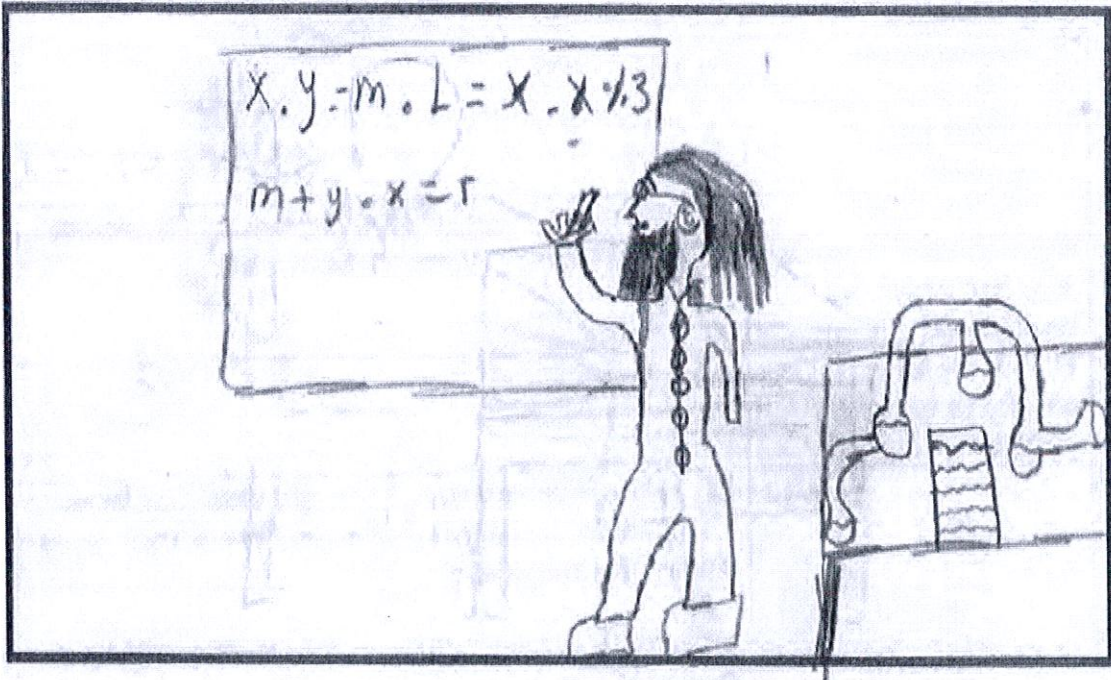 X.y.-m.L=X.X%3
m+y.x=r